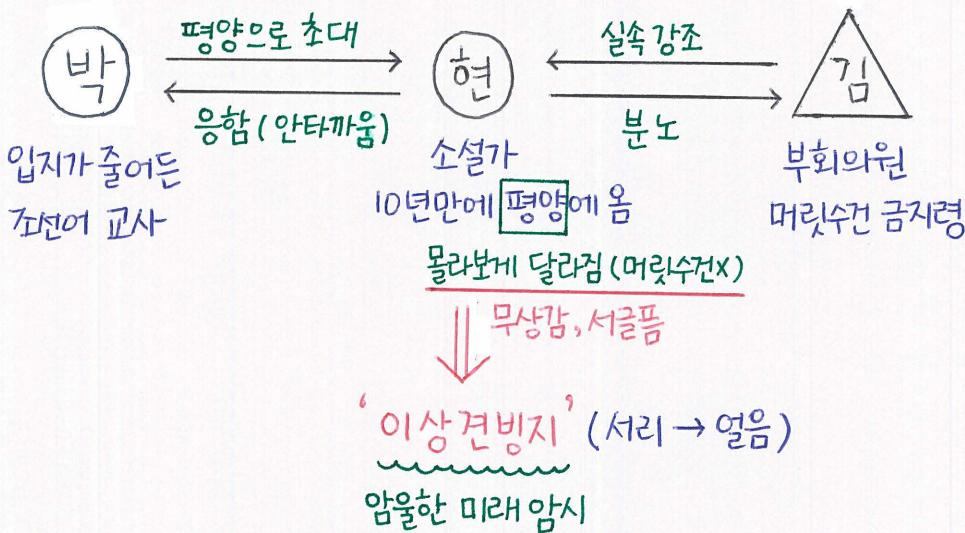 평양으로 초대
실속 강조
박
현
김
응함 (안타까움)
분노
입지가 줄어든
조선어 교사
소설가
10년만에 평양에 옴
부회의원
머릿수건 금지령
몰라보게 달라짐 (머릿수건X)
무상감, 서글픔
'이상견빙지' (서리 → 얼음)
암울한 미래 암시